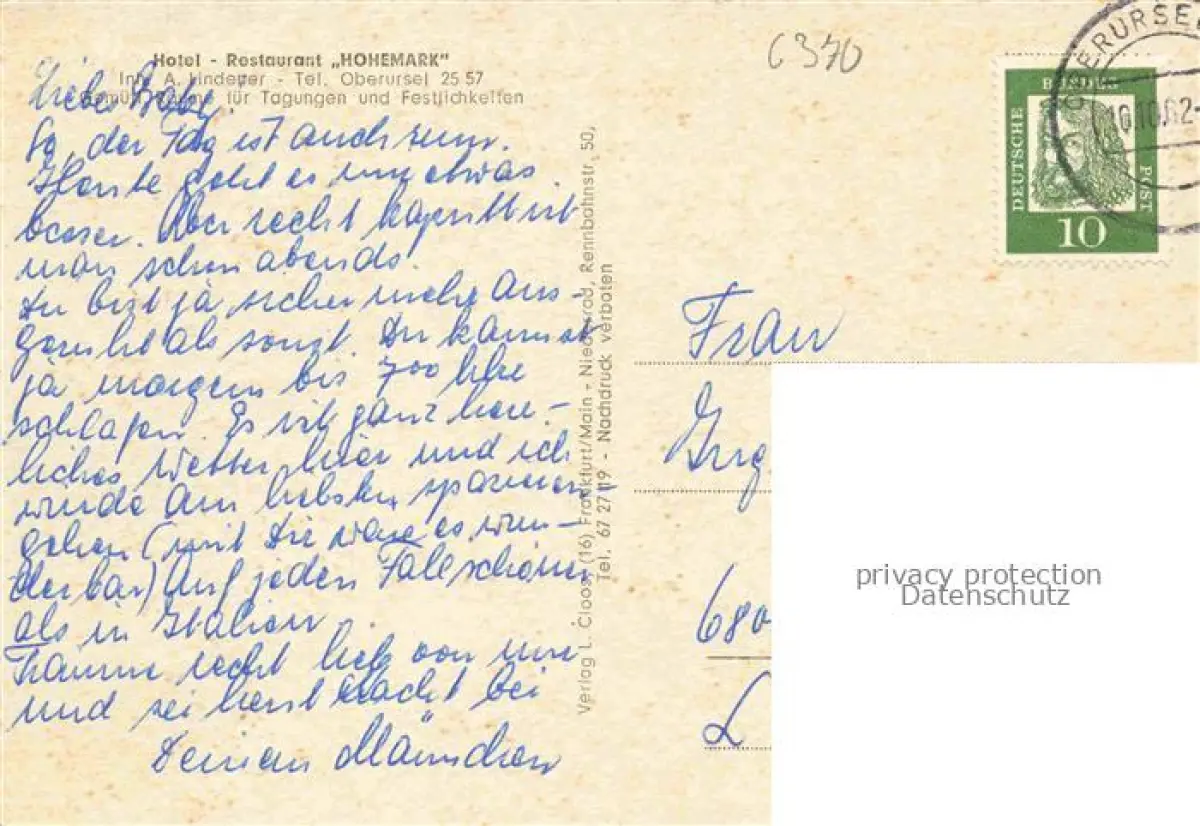 Hotel - Restaurant „HOHEMARK"
Inh. A. Lindener - Tel. Oberursel 25 57
für Tagungen und Festlichkeiten
Liebe Baby!
So, der Tag ist auch rum.
Heute geht es mir etwas
besser. Aber recht kaputt ist
man schon abends.
Du bist ja sicher mehr aus-
geruht als sonst. Du kannst
ja morgen bis 7oo Uhr
schlafen. Es ist ganz herr-
liches Wetter hier und ich
würde am liebsten spazieren
gehen (mit Dir wäre es wun-
derbar) Auf jeden Fall schöner
als in Italien.
Träume recht lieb von mir
und sei heut Nacht bei
Deinem Männchen
Verlag L. Clooss, (16) Frankfurt/Main - Niederrad, Rennbahnstr. 50,
Tel. 67 27 19 - Nachdruck verboten
6370
OBERURSEL
10.10.62
DEUTSCHE
BUNDES
POST
10
Frau
680
L
privacy protection
Datenschutz